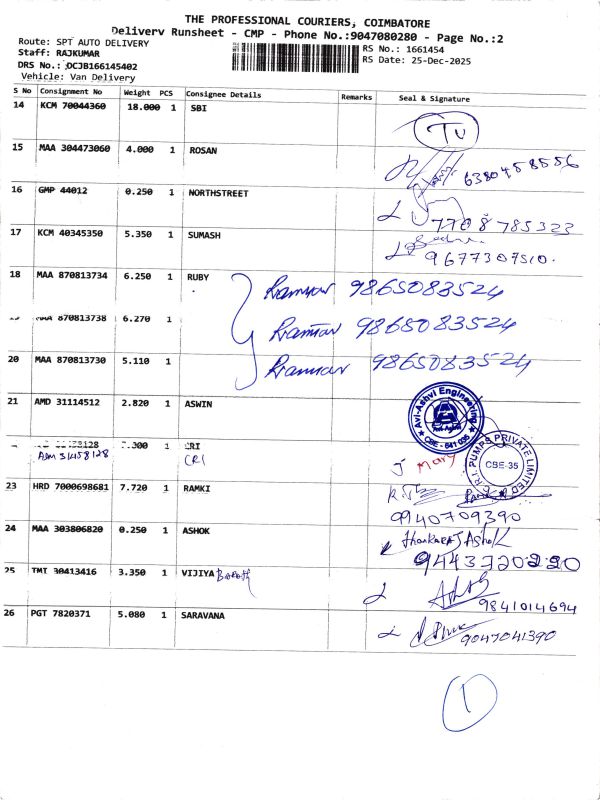 THE PROFESSIONAL COURIERS, COIMBATORE
Delivery Runsheet - CMP - Phone No.:9047080280 - Page No.:2
Route: SPT AUTO DELIVERY
RS No.: 1661454
Staff: RAJKUMAR
RS Date: 25-Dec-2025
DRS No.: DCJB166145402
Vehicle: Van Delivery
S No Consignment No Weight PCS Consignee Details Remarks Seal & Signature
14 KCM 70044360 18.000 1 SBI
15 MAA 304473060 4.000 1 ROSAN
6380458556
16 GMP 44012 0.250 1 NORTHSTREET
7708785323
17 KCM 40345350 5.350 1 SUMASH
9677307510.
18 MAA 870813734 6.250 1 RUBY
9865083524
MAA 870813738 6.270 1
9865083524
20 MAA 870813730 5.110 1
9865083524
21 AMD 31114512 2.820 1 ASWIN
Avi-Ashvi Engineering
Avi-Ashvi
CBE - 641 035
1 CRI
CRI
Mary
C.R.I. PUMPS PRIVATE LIMITED
CBE-35
23 HRD 7000698681 7.720 1 RAMKI
9940709390
24 MAA 303806820 0.250 1 ASHOK
Ashok
9443720220
25 TMT 30413416 3.350 1 VIJIYA
9841014694
26 PGT 7820371 5.080 1 SARAVANA
9047041390
1